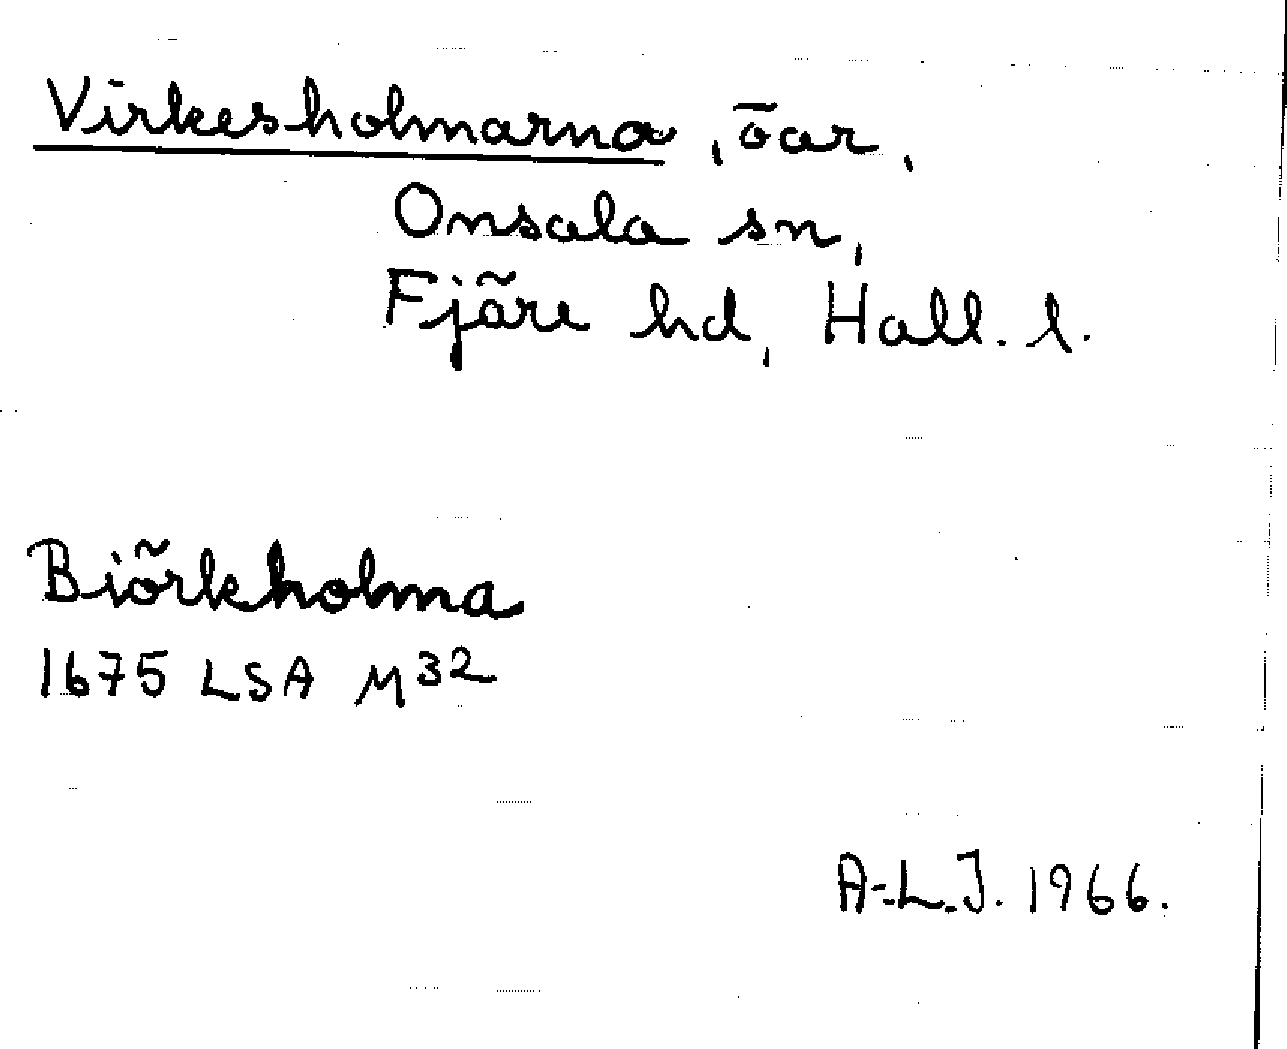 Virkesholmarna, öar,
Onsala sn,
Fjäre hd, Hall. l.
Biörkholma
1675 LSA M32
A-L.J. 1966.